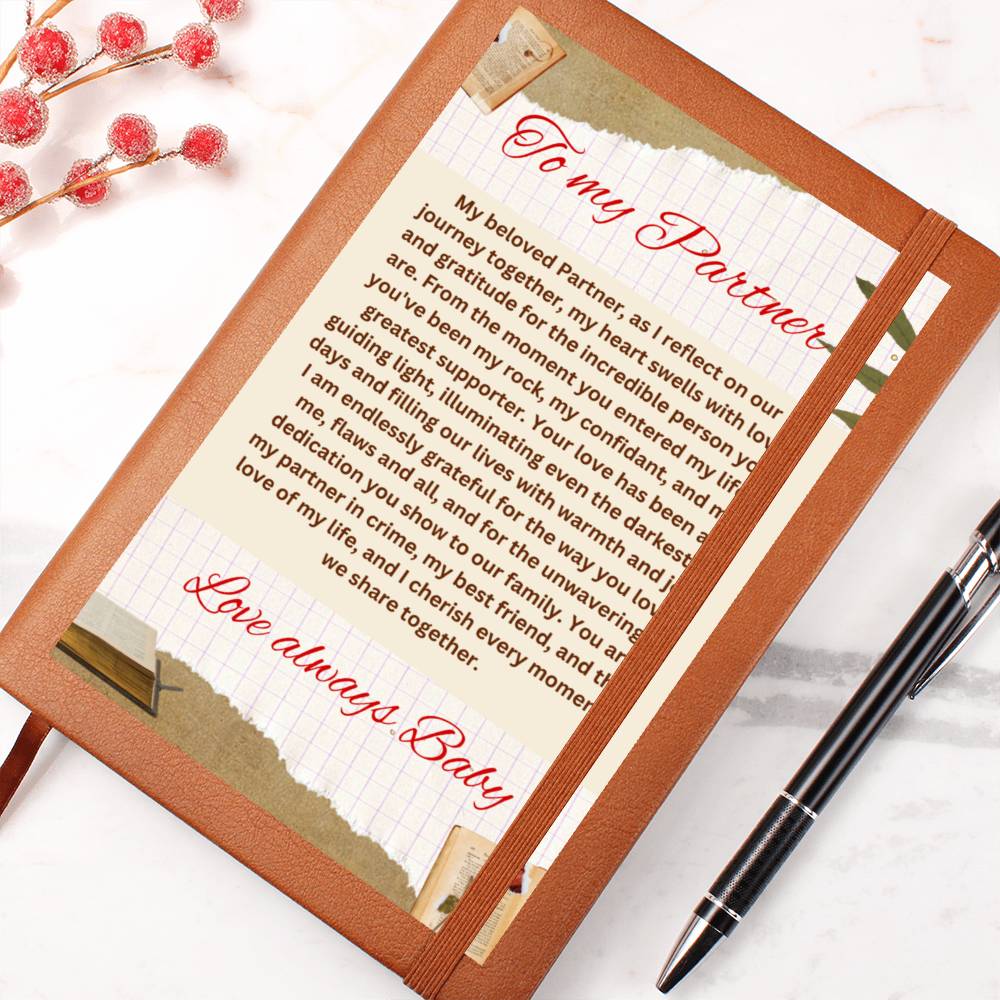 To my Partner
My beloved Partner, as I reflect on our
journey together, my heart swells with
and gratitude for the incredible person
are. From the moment you entered my
you've been my rock, my confidant, and
greatest supporter. Your love has been a
guiding light, illuminating even the darkest
days and filling our lives with warmth and
I am endlessly grateful for the way you
me, flaws and all, and for the unwavering
dedication you show to our family. You
my partner in crime, my best friend, and
love of my life, and I cherish every
we share together.
Love always, Baby